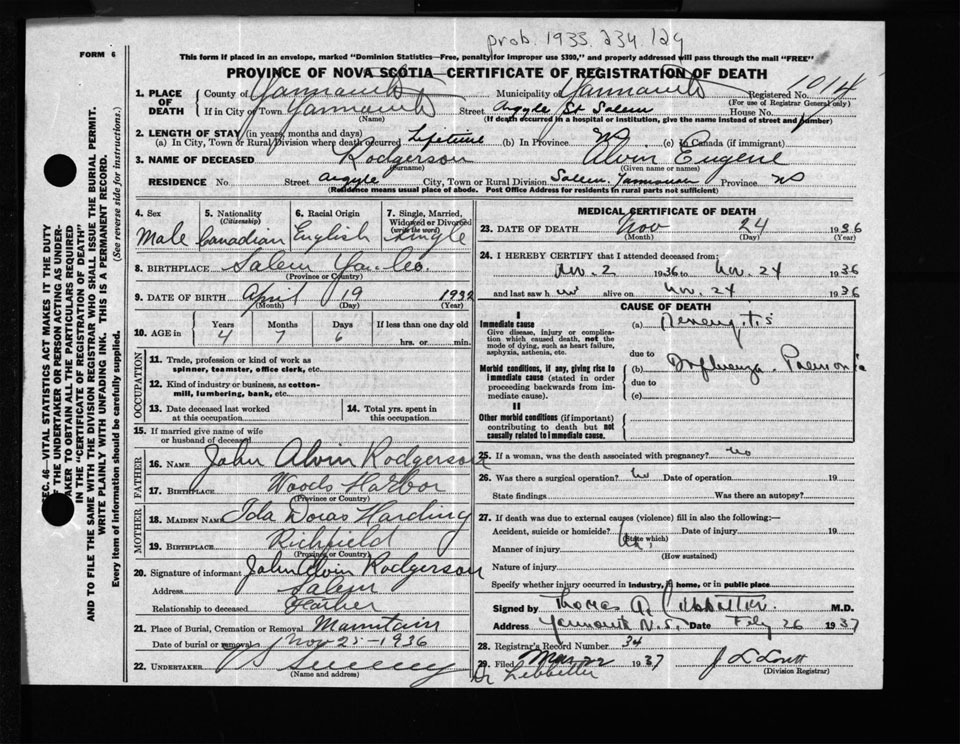 prob. 1933. 234. 129
FORM 6
This form if placed in an envelope, marked "Dominion Statistics—Free, penalty for improper use $300," and properly addressed will pass through the mail "FREE"
PROVINCE OF NOVA SCOTIA—CERTIFICATE OF REGISTRATION OF DEATH
1. PLACE OF DEATH County of Yarmouth Municipality of Yarmouth Registered No. 1014
(For use of Registrar General only)
If in City or Town Yarmouth Street Argyle St Salem House No.
(Name) (If death occurred in a hospital or institution, give the name instead of street and number)
2. LENGTH OF STAY (in years, months and days)
(a) In City, Town or Rural Division where death occurred Lifetime (b) In Province NS (c) In Canada (if immigrant)
3. NAME OF DECEASED Rodgerson Alvin Eugene
(Surname) (Given name or names)
RESIDENCE No. Street Argyle City, Town or Rural Division Salem Yarmouth Province NS
(Residence means usual place of abode. Post Office Address for residents in rural parts not sufficient)
4. Sex Male
5. Nationality (Citizenship) Canadian
6. Racial Origin English
7. Single, Married, Widowed or Divorced (write the word) Single
8. BIRTHPLACE Salem Yar. Co.
(Province or Country)
9. DATE OF BIRTH April 19 1932
(Month) (Day) (Year)
10. AGE in Years Months Days If less than one day old
4 7 6 hrs. or min.
OCCUPATION
11. Trade, profession or kind of work as spinner, teamster, office clerk, etc.
12. Kind of industry or business, as cotton-mill, lumbering, bank, etc.
13. Date deceased last worked at this occupation.
14. Total yrs. spent in this occupation.
15. If married give name of wife or husband of deceased
FATHER
16. NAME John Alvin Rodgerson
17. BIRTHPLACE Woods Harbor
(Province or Country)
MOTHER
18. MAIDEN NAME Ida Doras Harding
19. BIRTHPLACE Richfield
(Province or Country)
20. Signature of informant John Alvin Rodgerson
Address Salem
Relationship to deceased Father
21. Place of Burial, Cremation or Removal Mountain
Date of burial or removal Nov 25 - 1936
22. UNDERTAKER Sweeny
(Name and address)
MEDICAL CERTIFICATE OF DEATH
23. DATE OF DEATH Nov 24 1936
(Month) (Day) (Year)
24. I HEREBY CERTIFY that I attended deceased from:
Nov. 2 1936 to Nov. 24 1936
and last saw him alive on Nov. 24 1936
CAUSE OF DEATH
I
Immediate cause (a) Menengitis
Give disease, injury or complication which caused death, not the mode of dying, such as heart failure, asphyxia, asthenia, etc.
due to
Morbid conditions, if any, giving rise to immediate cause (stated in order proceeding backwards from immediate cause). (b) Influenza - Pnemonia
due to
(c)
II
Other morbid conditions (if important) contributing to death but not causally related to immediate cause.
25. If a woman, was the death associated with pregnancy? no
26. Was there a surgical operation? no Date of operation 19
State findings Was there an autopsy?
27. If death was due to external causes (violence) fill in also the following:—
Accident, suicide or homicide? Date of injury 19
(State which)
Manner of injury
(How sustained)
Nature of injury
Specify whether injury occurred in industry, in home, or in public place
Signed by Thomas A. Lebbetter M.D.
Address Yarmouth N.S. Date Feby 26 1937
28. Registrar's Record Number 34
29. Filed Mar. 22 1937
(Division Registrar)
Dr Lebbetter
SEC. 46—VITAL STATISTICS ACT MAKES IT THE DUTY OF THE UNDERTAKER OR PERSON ACTING AS UNDERTAKER TO OBTAIN ALL THE PARTICULARS REQUIRED IN THE "CERTIFICATE OF REGISTRATION OF DEATH" AND TO FILE THE SAME WITH THE DIVISION REGISTRAR WHO SHALL ISSUE THE BURIAL PERMIT.
WRITE PLAINLY WITH UNFADING INK. THIS IS A PERMANENT RECORD.
Every item of information should be carefully supplied. (See reverse side for instructions.)